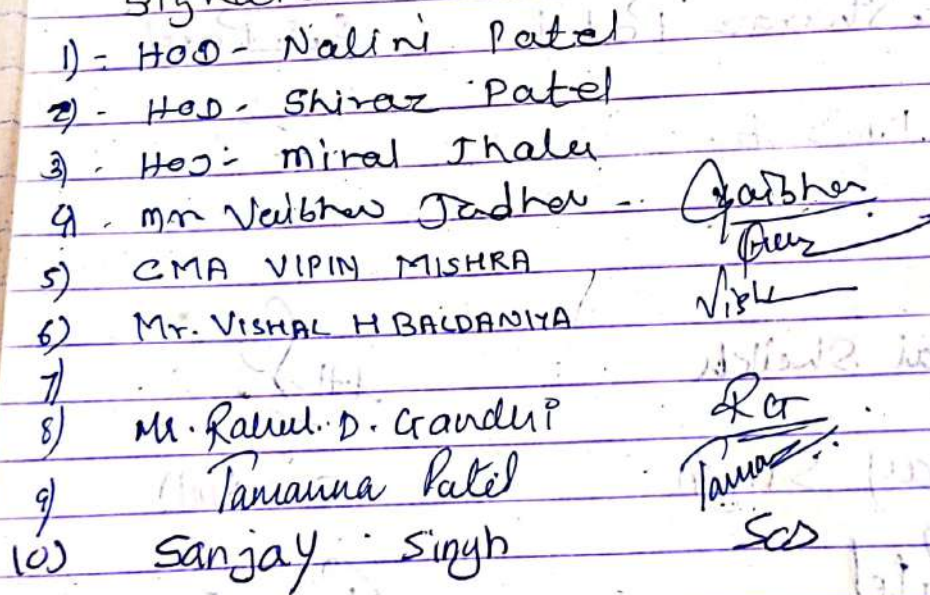 1) - HOD - Nalini Patel
2) - HOD - Shiraz Patel
3) - HOD - Miral Jhala
4) - Mr Vaibhav Jadhav - Vaibhav
5) CMA VIPIN MISHRA
6) Mr. VISHAL H BALDANIYA Vish
7)
8) Mr. Rahul. D. Gandhi RG
9) Tamanna Patel Tamanna
10) Sanjay Singh